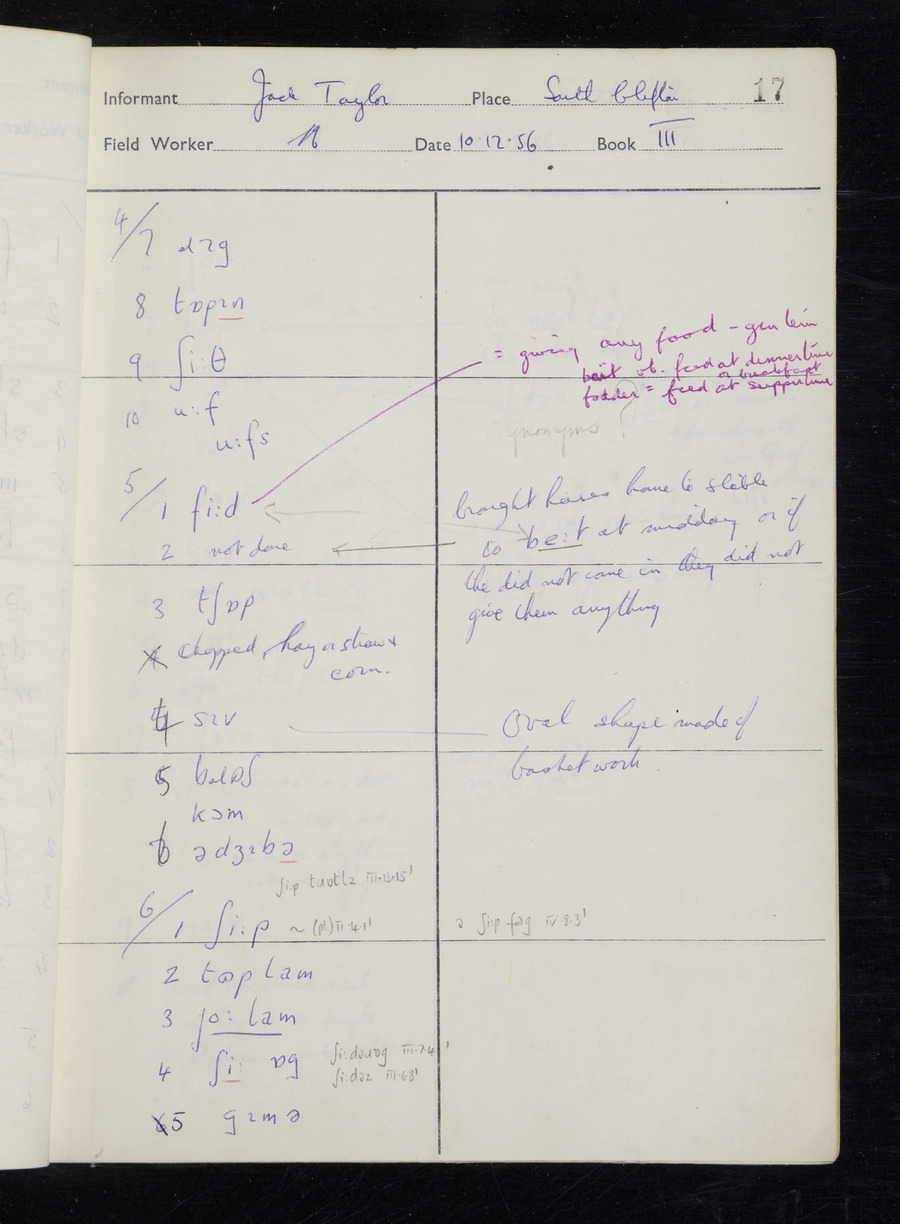 Informant Jack Taylor Place South Clifton 17
Field Worker Date 10.12.56 Book III
4/7 dɪg
8 tɒpɪn
= giving any food - gen term
bait vb. feed at dinnertime
or breakfast
fodder = feed at suppertime
9 ʃi:θ
10 u:f
u:fs
synonyms?
5/1 fi:d
brought horses home to stable
2 not done
to be:t at midday or if
the did not come in they did not
give them anything
3 tʃɒp
chopped, hay or straw +
corn.
4 sɪv
Oval shape made of
basket work.
5 balɒʃ
kəm
6 ədʒɪbə
ʃi:p III.13.15'
6/1 ʃi:p ~ (pl.) II.4.1'
ə ʃi:p IV.8.3'
2 tɒp lam
3 jo: lam
4 ʃi: ɒg III.7.4'
III.6.8'
5 gɪmə